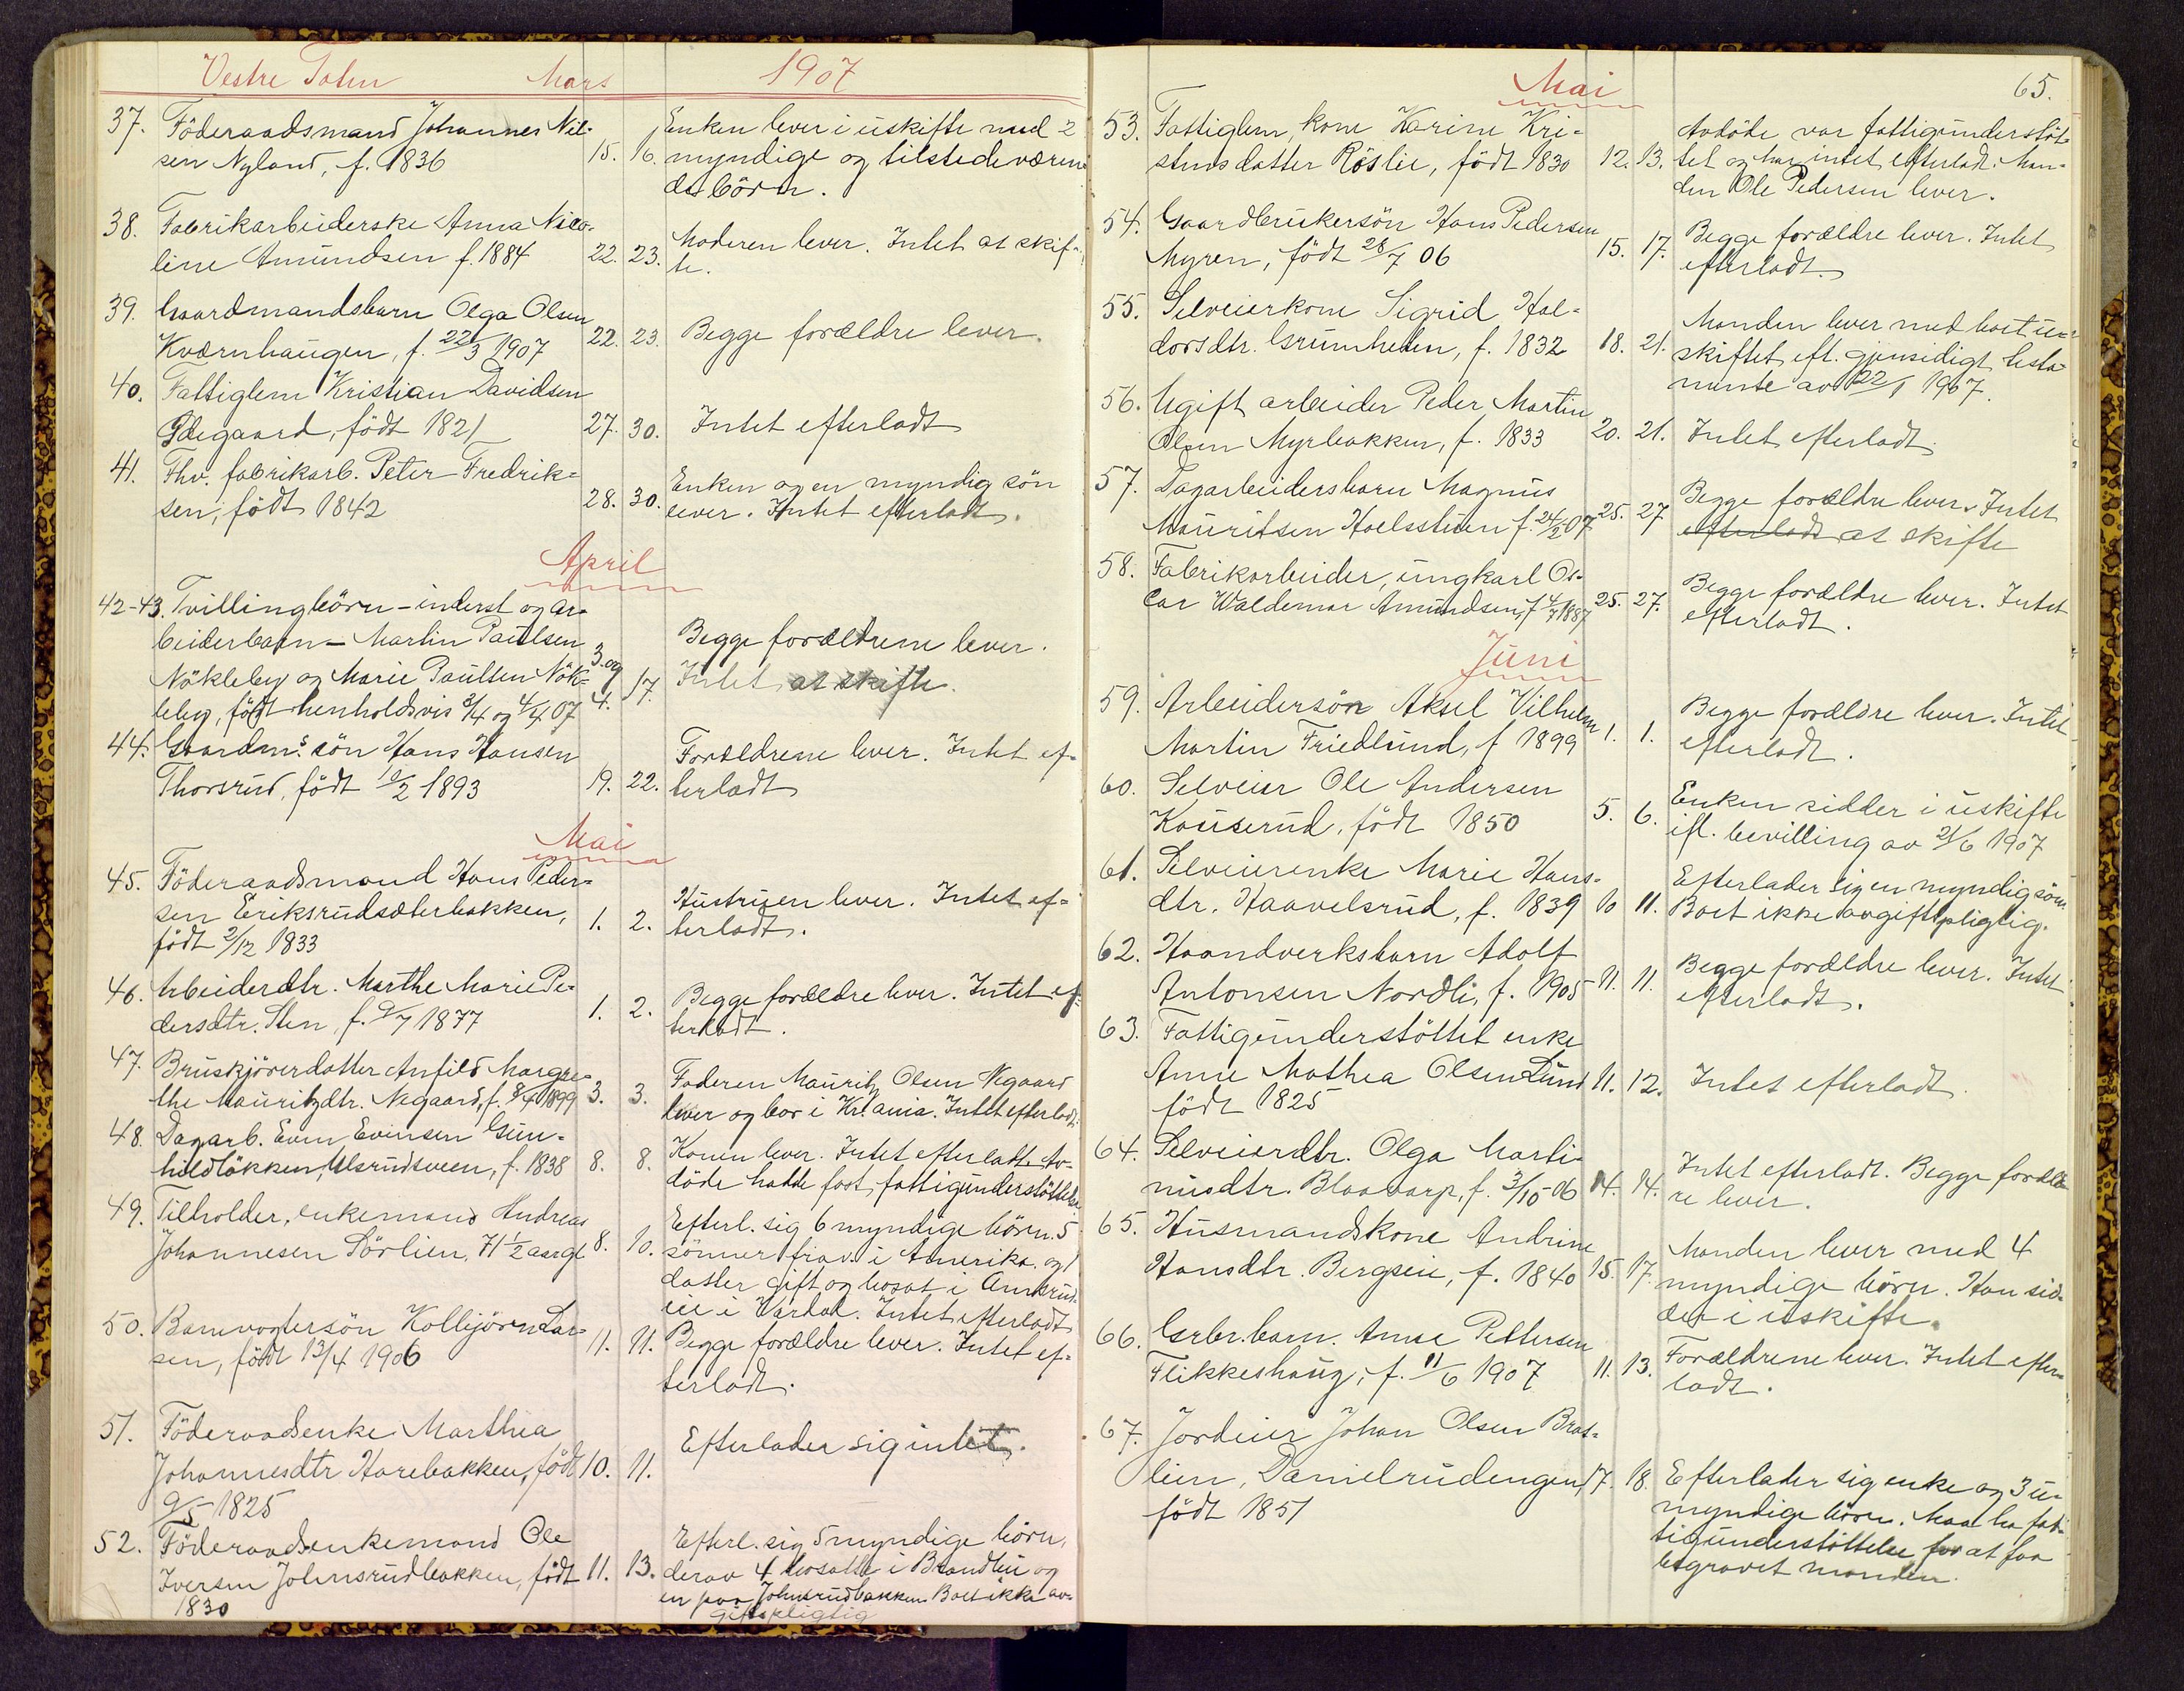 Vestre Toten Mars 1907
37. Föderaadsmand Johannes Nil-
sen Nyland, f. 1836 15. 16.
Enken lever i uskifte med 2
myndige og tilstedeværen-
de börn.
38. Fabrikarbeiderske Anna Nico-
line Amundsen f. 1884 22. 23.
Moderen lever. Intet at skif-
te.
39. Gaardmandsbarn Olga Olsen
Kværnhaugen, f. 22/3 1907 22. 23. Begge forældre lever.
40. Fattiglem Kristian Davidsen
Ödegaard, födt 1821 27. 30. Intet efterladt
41. Fhv. fabrikarb. Peter Fredrik-
sen, födt 1842 28. 30.
Enken og en myndig sön
lever. Intet efterladt.
April
42-43. Tvillingbörn - inderst og ar-
beiderbarn - Martin Paulsen
Nökleby og Marie Paulsen Nök-
leby, födt henholdsvis 3/4 og 4/4 07
3. og
4. 17.
Begge forældrene lever.
Intet at skifte.
44. Gaardms. sön Hans Hansen
Thorsrud, födt 10/2 1893 19. 22.
Forældrene lever. Intet ef-
terladt
Mai
45. Föderaadsmand Hans Peder-
sen Eriksrudsæterbakken,
födt 2/12 1833
1. 2.
Hustruen lever. Intet ef-
terladt.
46. Arbeiderdtr. Marthe Marie Pe-
dersdtr. Sten, f. 9/7 1877 1. 2.
Begge forældre lever. Intet ef-
terladt.
47. Bruskjörerdatter Anfild Margre-
the Mauritzdtr. Negaard, f. 8/4 1899 3. 3.
Faderen Mauritz Olsen Negaard
lever og bor i Kr.ania. Intet efterladt.
48. Dagarb. Even Evensen Gun-
hildlökken, Ulsrudsveen, f. 1838 8. 8.
Konen lever. Intet efterladt. Av-
döde hadde fast fattigunderstöttelse
49. Tilholder, enkemand Andreas
Johannesen Sörlien, 71 1/2 aar gl. 8. 10.
Efterl. sig 6 myndige börn. 5
sönner i Amerika og 1
datter gift og bosat i
i Vardal. Intet efterladt
50. Barnevogtersön Kolbjörn Lar-
sen, födt 13/4 1906 11. 11.
Begge forældre lever. Intet ef-
terladt.
51. Föderaadsenke Marthea
Johannesdtr Harebakken, födt
9/5 1825
10. 11.
Efterlader sig intet.
52. Föderaadsenkemand Ole
Iversen Johnsrudbakken, födt
1830
11. 13.
Efterl. sig 5 myndige börn,
derav 4 bosatte i Brandbu og
en paa Johnsrudbakken. Boet ikke av-
giftspligtig
65.
Mai
53. Fattiglem, kone Karine Kri-
stensdatter Röslie, födt 1830 12. 13.
Avdöde var fattigunderstöt-
tet og har intet efterladt. Man-
den Ole Pedersen lever.
54. Gaardbrukersön Hans Pedersen
Myren, födt 28/7 06 15. 17.
Begge forældre lever. Intet
efterladt.
55. Selveierkone Sigrid Hal-
dorsdtr. Grimhelen, f. 1832 18. 21.
Manden lever med boet u-
skiftet eft. gjensidigt testa-
mente av 22/1 1907.
56. Ugift arbeider Peder Martin
Olsen Myrbakken, f. 1833 20. 21. Intet efterladt.
57. Dagarbeidersbarn Magnus
Mauritsen Hoelsstuen f. 24/2 07 25. 27
Begge forældre lever. Intet
efterladt at skifte
58. Fabrikarbeider, ungkarl Os-
car Waldemar Amundsen, f. 4/7 1887 25. 27.
Begge forældre lever. Intet
efterladt.
Juni
59. Arbeidersön Aksel Vilhelm
Martin Friedlund, f 1899 1. 1.
Begge forældre lever. Intet
efterladt.
60. Selveier Ole Andersen
Kauserud, födt 1850 5. 6.
Enken sidder i uskifte
ifl. bevilling av 21/6 1907
61. Selveierenke Marie Hans-
dtr. Haavelsrud, f. 1839 10 11.
Efterlader sig en myndig sön.
Boet ikke avgiftspligtig.
62. Haandverksbarn Adolf
Antonsen Nordli, f. 1905 11. 11.
Begge forældre lever. Intet
efterladt.
63. Fattigunderstöttet enke
Anne Mathea Olsen Lund
födt 1825
11. 12. Intet efterladt.
64. Selveierdtr. Olga Marti-
nusdtr. Blaavarp, f. 3/10-06 14. 14.
Intet efterladt. Begge foræld-
re lever.
65. Husmandskone Andrine
Hansdtr. Bergseie, f. 1840 15. 17.
Manden lever med 4
myndige börn. Han sid-
der i uskifte.
66. Grbr. barn. Anne Pettersen
Flikkeshaug, f. 11/6 1907 11. 13.
Forældrene lever. Intet efter-
ladt.
67. Jordeier Johan Olsen Brat-
lien, Danielrudengen,
födt 1851
17. 18.
Efterlader sig enke og 3 u-
myndige börn. Maa ha fat-
tigunderstöttelse for at faa
begravet manden.